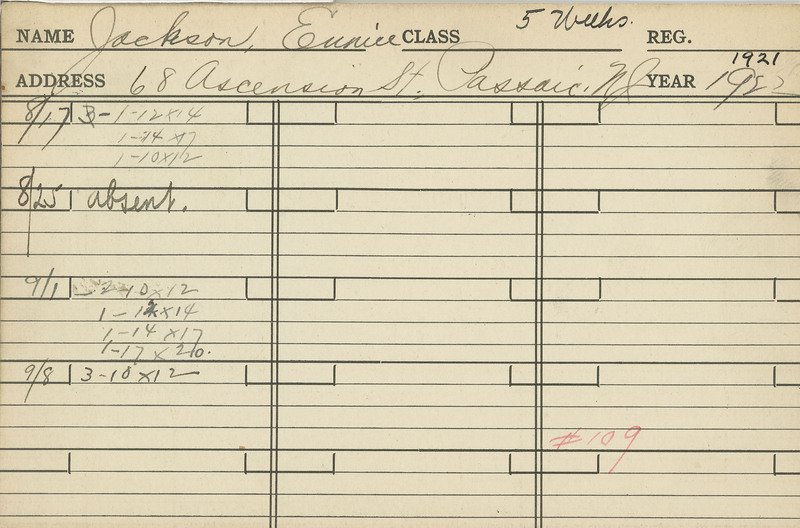 NAME Jackson, Eunice CLASS 5 Weeks. REG.
1921
ADDRESS 68 Ascension St. Passaic, NJ YEAR 1922
8/17 3-1-12x14
1-14x17
1-10x12
8/25 absent.
9/1 -2-10x12
1-12x14
1-14x17
1-17x20.
9/8 3-10x12
#109